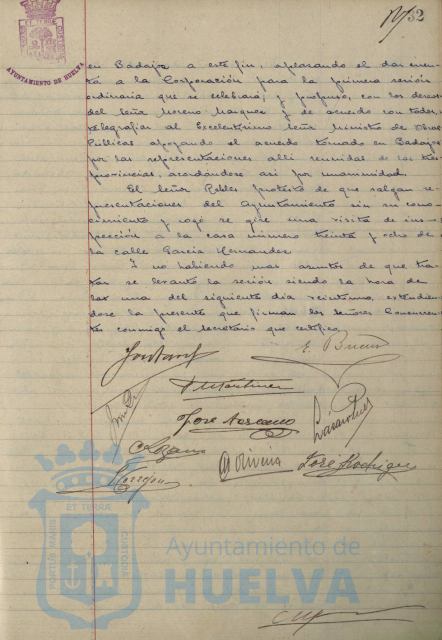 32
AYUNTAMIENTO DE HUELVA
en Badajoz a este fin, aplazando el dar cuen-
ta a la Corporación para la primera sesión
ordinaria que se celebrará; y propuso, con los demás
del Señor Moreno Marquez y de acuerdo con todos,
telegrafiar al Excelentísimo Señor Ministro de Obras
Públicas apoyando el acuerdo tomado en Badajoz
por las representaciones alli reunidas de las tres
provincias, acordándose asi por unanimidad.
El Señor Robles protestó de que salgan re-
presentaciones del Ayuntamiento sin su cono-
cimiento y rogó se gire una visita de ins-
pección a la casa número treinta y ocho de
la calle García Hernandez
Y no habiendo mas asuntos de que tra-
tar se levanto la sesión siendo la hora de
las una del siguiente dia veintiuno, extendien-
dose la presente que firman los señores Concurren-
tes conmigo el Secretario que certifico.
E. Bueno
Martinez
José
Lozano
Oliveira
José Rodriguez
ET TERRÆ
PORTUS MARIS
CUSTODIA
Ayuntamiento de
HUELVA